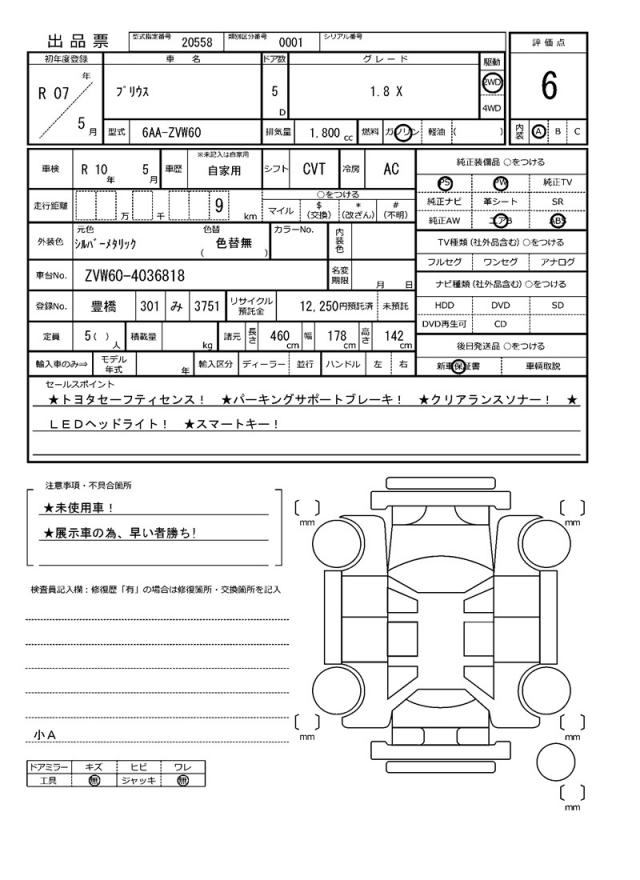 出品票
型式指定番号 20558 類別区分番号 0001 シリアル番号
初年度登録 車名 ドア数 グレード 駆動 評価点
R 07 年 5 月
プリウス 5 D 1.8 X 2WD 4WD 6
型式 6AA-ZVW60 排気量 1,800 cc 燃料 ガソリン 軽油 ( ) 内装 A B C
車検 R 10 年 5 月 車歴 ※未記入は自家用 自家用 シフト CVT 冷房 AC 純正装備品 ○をつける
PS PW 純正TV
走行距離 万 千 9 km ○をつける
マイル $(交換) *(改ざん) #(不明)
純正ナビ 革シート SR
純正AW エアB ABS
外装色 元色 シルバーメタリック 色替 ( 色替無 ) カラーNo. 内装色
TV種類(社外品含む)○をつける
フルセグ ワンセグ アナログ
車台No. ZVW60-4036818 名変期限 月 日
ナビ種類(社外品含む)○をつける
登録No. 豊橋 301 み 3751 リサイクル預託金 12,250円預託済 未預託
HDD DVD SD
DVD再生可 CD
定員 5( ) 人 積載量 kg 諸元 長さ 460 cm 幅 178 cm 高さ 142 cm
後日発送品 ○をつける
輸入車のみ⇒ モデル年式 年 輸入区分 ディーラー 並行 ハンドル 左 右
新車保証書 車輌取説
セールスポイント
★トヨタセーフティセンス! ★パーキングサポートブレーキ! ★クリアランスソナー! ★
LEDヘッドライト! ★スマートキー!
注意事項・不具合箇所
★未使用車!
★展示車の為、早い者勝ち!
検査員記入欄:修復歴「有」の場合は修復箇所・交換箇所を記入
小A
ドアミラー キズ ヒビ ワレ
工具 無 ジャッキ 無
〔 〕 mm 〔 〕 mm
〔 〕 mm 〔 〕 mm
〔 〕 mm